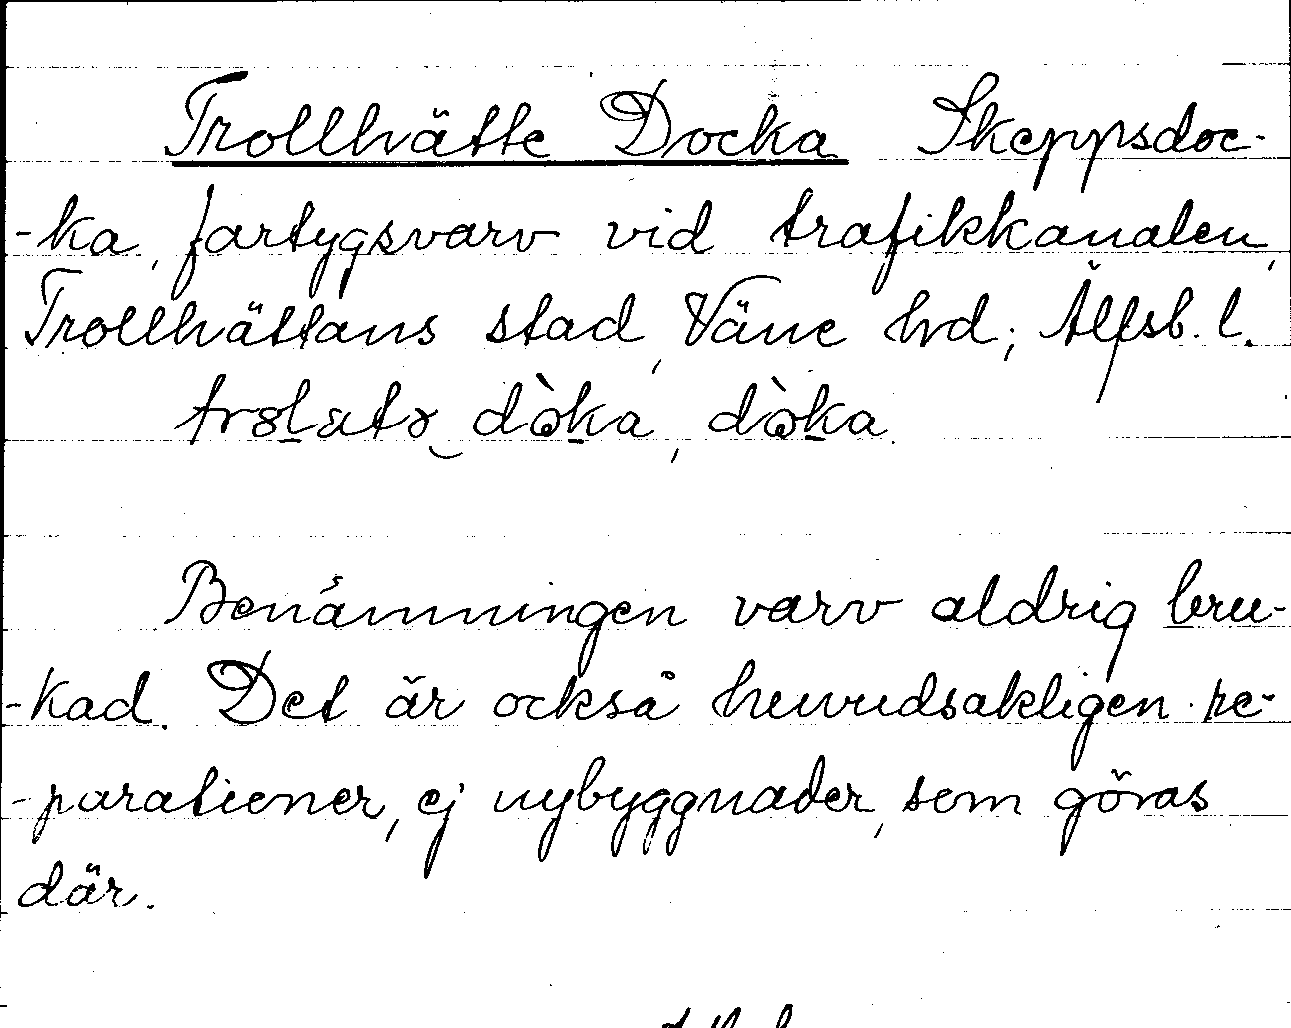 Trollhätte Docka Skeppsdoc-
-ka, fartygsvarv vid trafikkanalen,
Trollhättans stad, Väne hd; Älfsb. l.

Benämningen varv aldrig bru-
-kad. Det är också huvudsakligen re-
-parationer, ej nybyggnader, som göras
där.